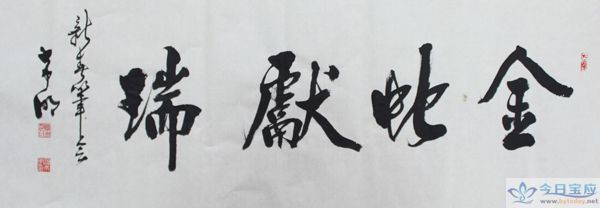 金虵獻瑞
新春筆会
今日宝应
www.bytoday.net